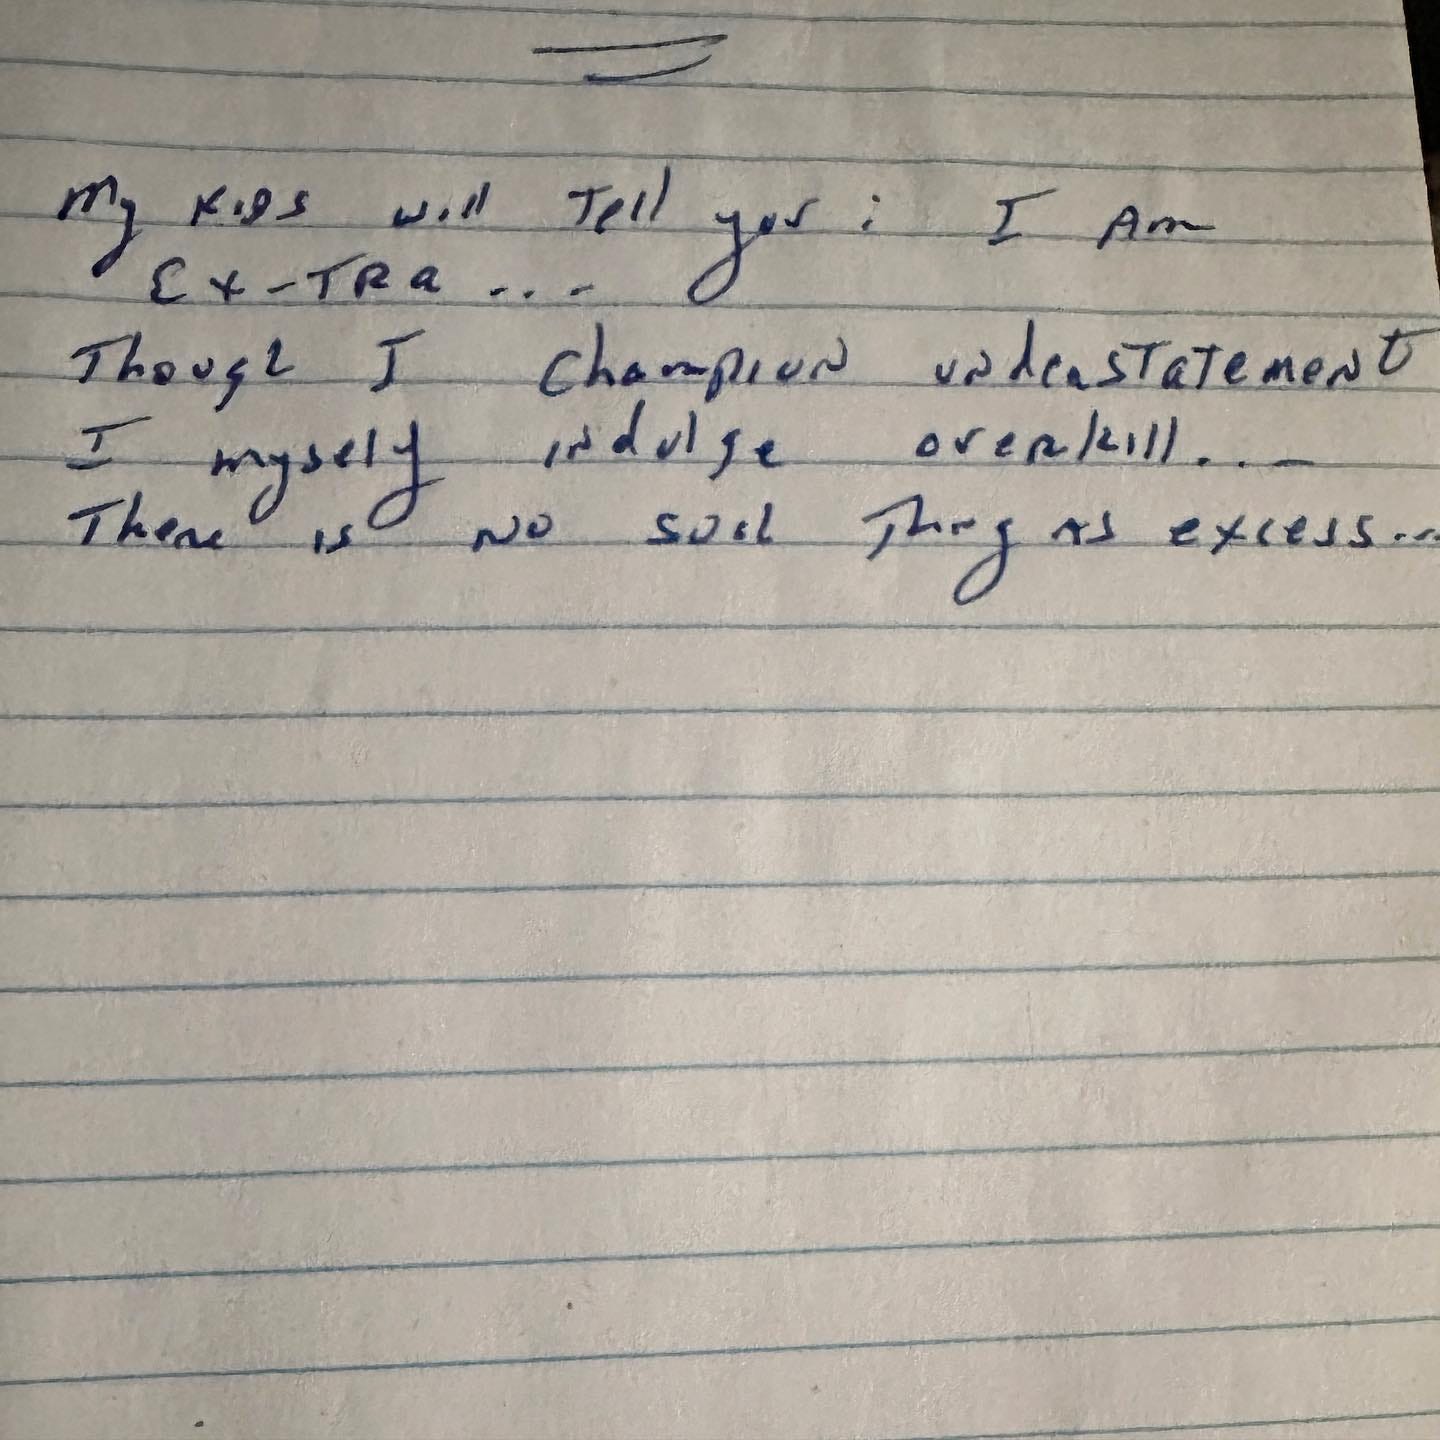 My kids will Tell you: I Am
Ex-TRa...
Though I Champion understatement
I myself indulge overkill...
There is no such Thing as excess...